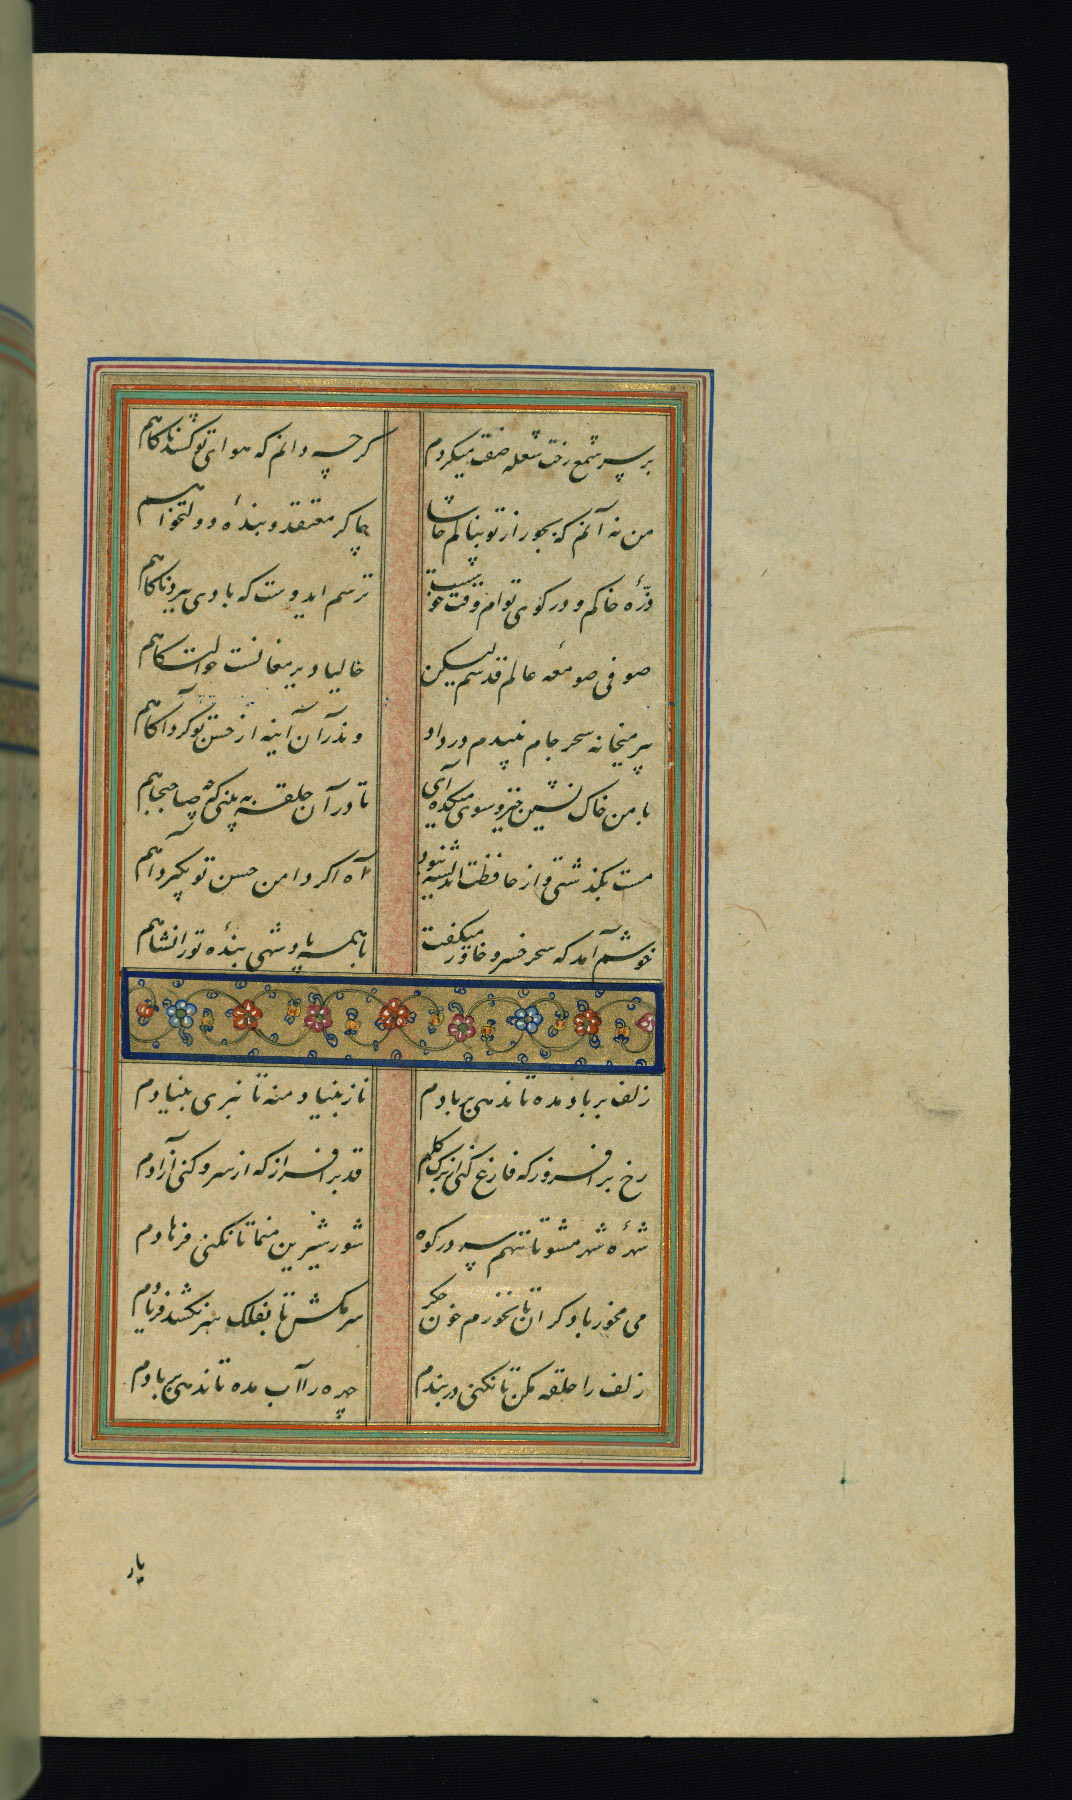 بر سر شمع رخت شعله صفت میکردم گرچه دانم که هوای تو کشد ناکاهم
من نه آنم که بجور از تو بنالم حاشا چاکر معتقد و بندهٔ دولتخواهم
ذرّهٔ خاکم و در کوی توام وقت خوشست ترسم ایدوست که بادی ببرد ناکاهم
صوفی صومعهٔ عالم قدسم لیکن حالیا دیر مغانست حوالتکاهم
پیر میخانه سحر جام جهان بینم داد وندر آن آینه از حسن تو کرد آکاهم
با من خاک نشین خیز و سوی میکده آی تا در آن حلقه به بینی که چه صاحبجاهم
مست بکذشتی و از حافظت اندیشه نبود آه اکر دامن حسن تو بکیرد آهم
خوشم آمد که سحر خسرو خاور میکفت با همه پادشهی بندهٔ تورانشاهم
زلف بر باد مده تا ندهی بر بادم ناز بنیاد منه تا نبری بنیادم
رخ برافروز که فارغ کنی از برک کلم قد برافراز که از سرو کنی آزادم
شهرهٔ شهر مشو تا ننهم سر در کوه شور شیرین منما تا نکنی فرهادم
می مخور با دکران تا نخورم خون جکر سر مکش تا بفلک سر نکشد فریادم
زلف را حلقه مکن تا نکنی در بندم چهره را آب مده تا ندهی بر بادم
یار